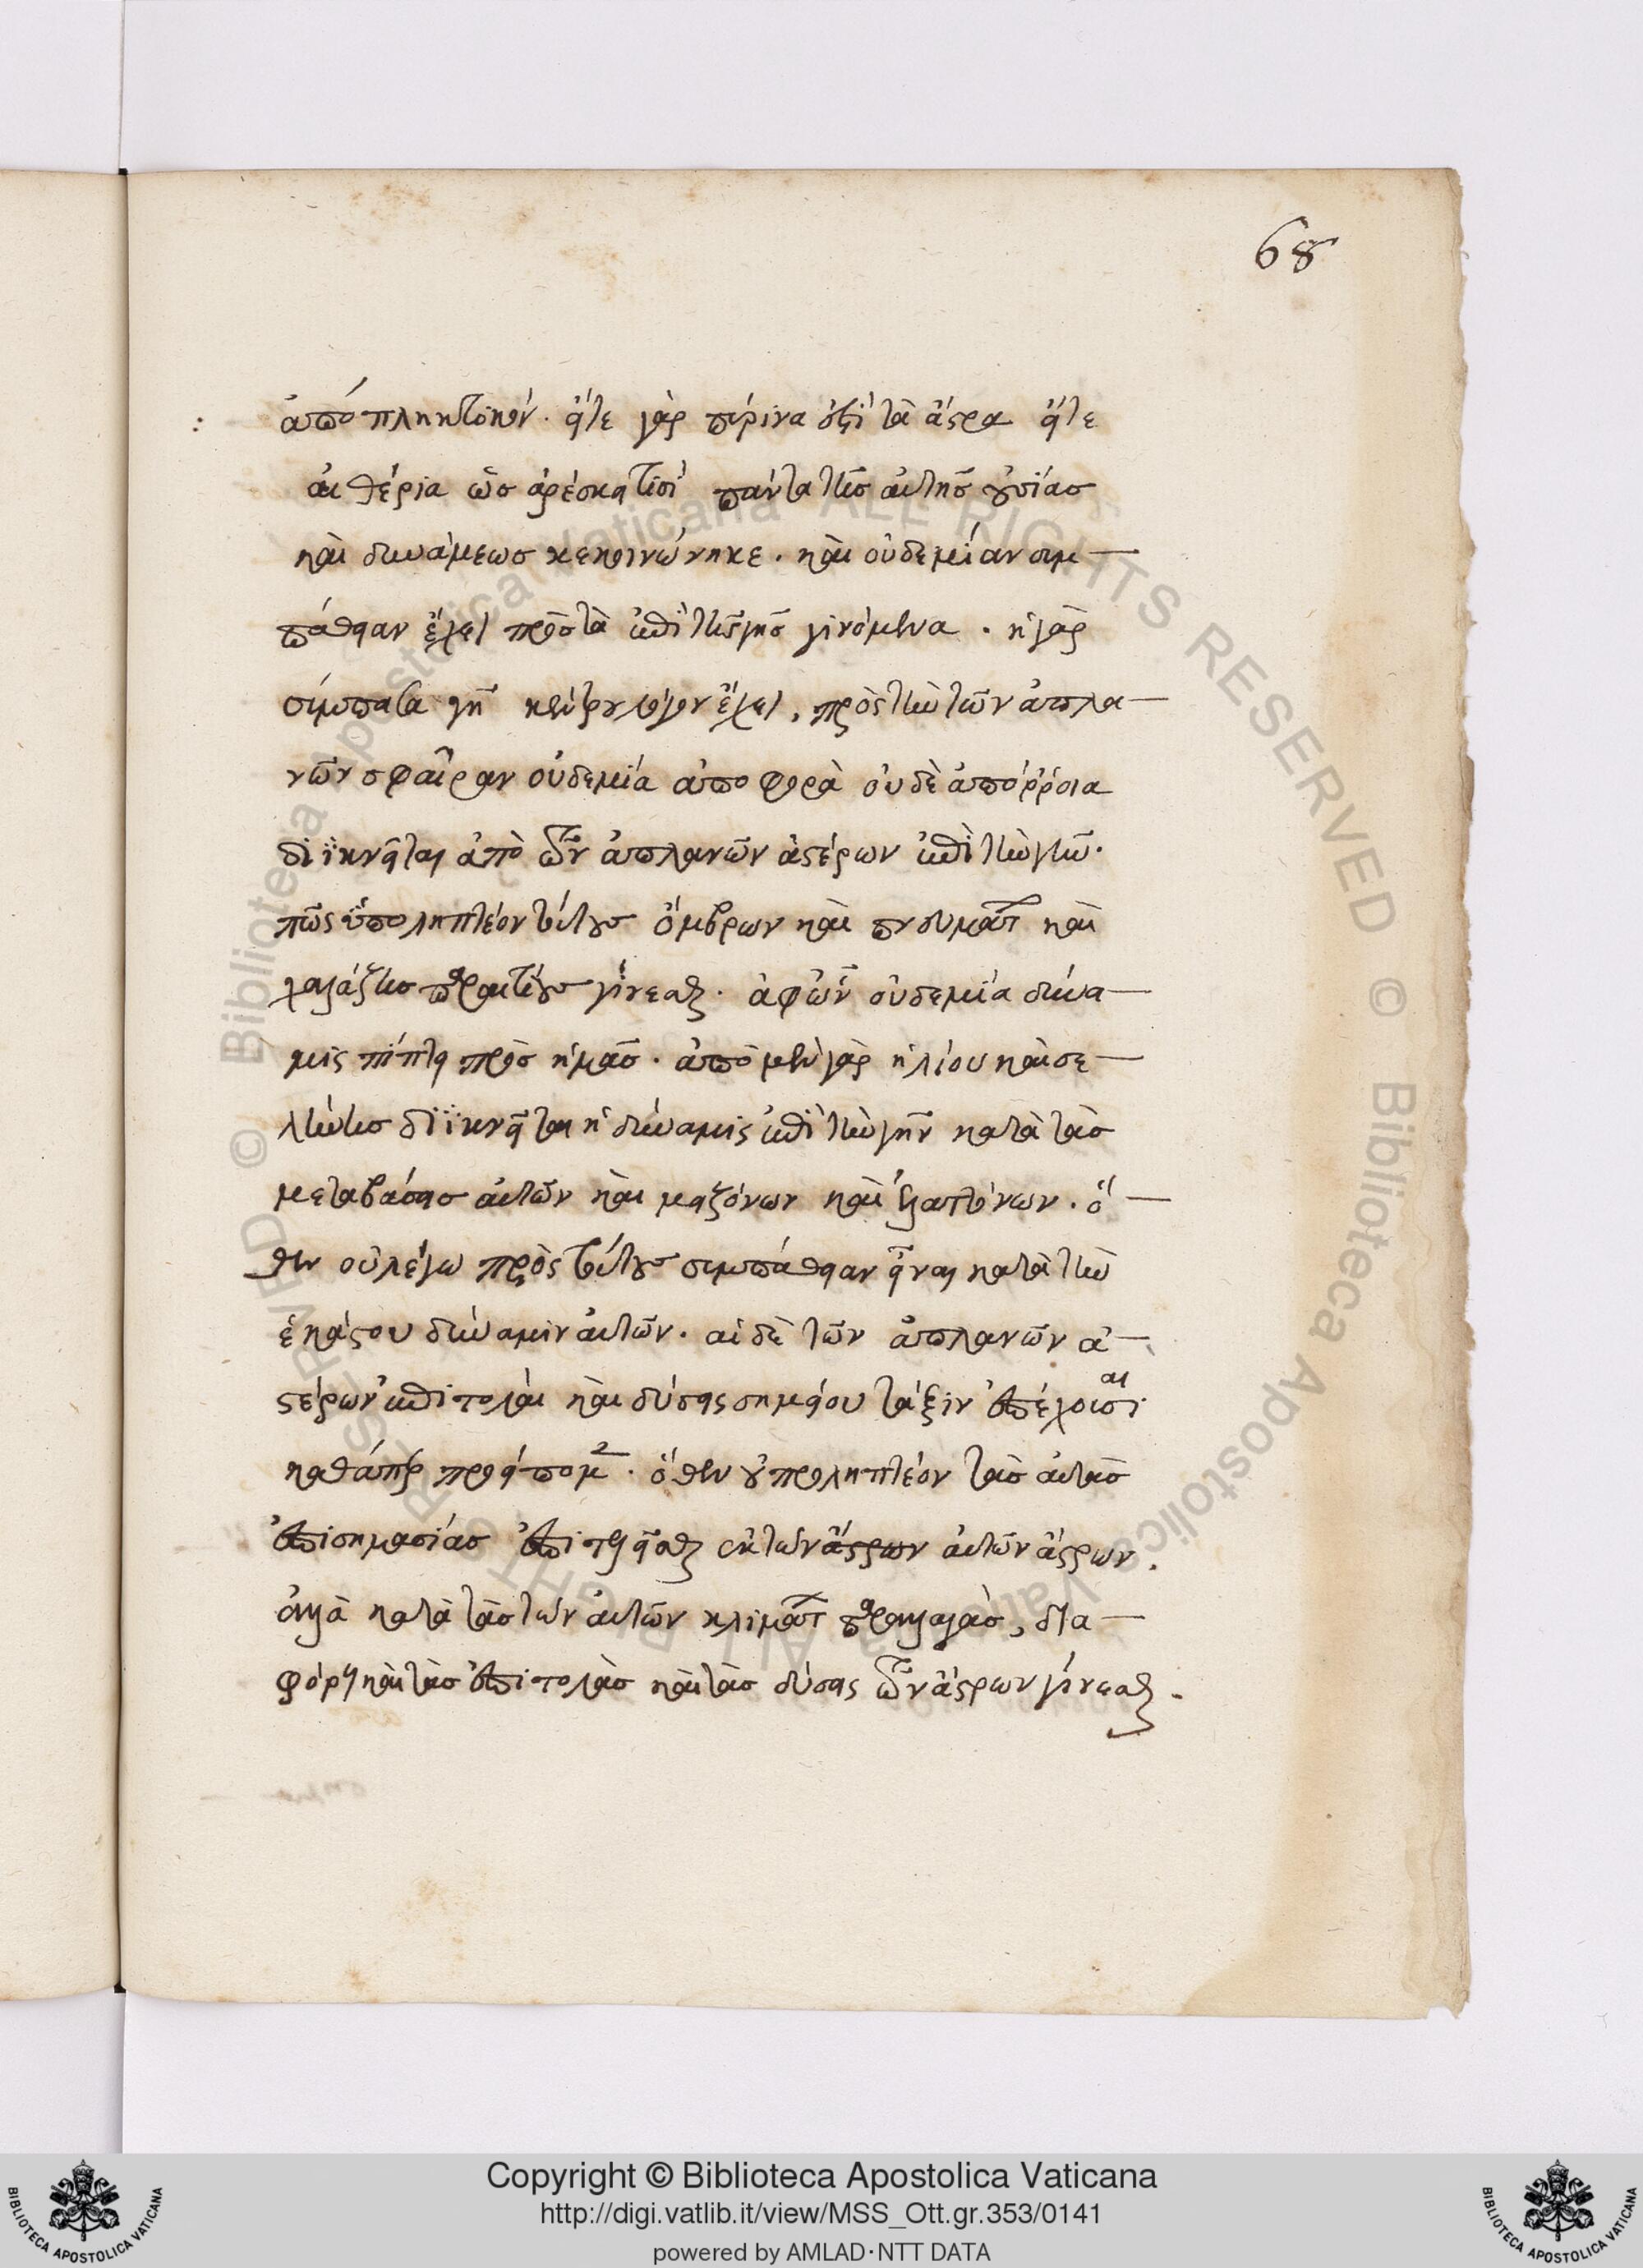 68
ἀπόπληκτικόν. εἴτε γὰρ πύρινα ἐστὶ τὰ ἄστρα εἴτε
αἰθέρια ὡς ἀρέσκει τισὶ πάντα τῆς αὐτῆς οὐσίας
καὶ δυνάμεως κεκοινώνηκε. καὶ οὐδεμίαν συμ
πάθειαν ἔχει πρὸς τὰ ἐπὶ τῆς γῆς γινόμενα. ἡ γὰρ
σύμπασα γῆ κέντρου λόγον ἔχει, πρὸς τὴν τῶν ἀπλα
νῶν σφαῖραν οὐδεμία ἀποφορὰ οὐδὲ ἀπόρροια
διϊκνεῖται ἀπὸ τῶν ἀπλανῶν ἀστέρων ἐπὶ τὴν γῆν.
πῶς ὑποληπτέον τούτους ὄμβρων καὶ πνευμάτ καὶ
χαλάζης παραιτίους γίνεσθαι. ἀφ ὧν οὐδεμία δύνα
μις πίπτει πρὸς ἡμᾶς. ἀπὸ μὲν γὰρ ἡλίου καὶ σε
λήνης διϊκνεῖται ἡ δύναμις ἐπὶ τὴν γῆν κατὰ τὰς
μεταβάσεις αὐτῶν καὶ μειζόνων καὶ ἐλαττόνων. ὅ
θεν οὐ λέγω πρὸς τούτους συμπάθειαν εἶναι κατὰ τὴν
ἑκάστου δύναμιν αὐτῶν. αἱ δὲ τῶν ἀπλανῶν ἀ
στέρων ἐπιτολαὶ καὶ δύσεις σημείου τάξιν ἐπέχουσι
αι
καθάπερ προείπομ. ὅθεν οὐ προληπτέον τὰς αὐτὰς
ἐπισημασίας ἐπιτελεῖσθαι ἐκ τῶν ἄστρων αὐτῶν ἄστρων.
ἀλλὰ κατὰ τὰς τῶν αὐτῶν κλιμάτ παραλλαγὰς, δια
φόρους καὶ τὰς ἐπιτολὰς καὶ τὰς δύσεις τῶν ἄστρων γίνεσθαι.
Copyright © Biblioteca Apostolica Vaticana
http://digi.vatlib.it/view/MSS_Ott.gr.353/0141
powered by AMLAD·NTT DATA
BIBLIOTECA APOSTOLICA VATICANA
BIBLIOTECA APOSTOLICA VATICANA
© Biblioteca Apostolica Vaticana ALL RIGHTS RESERVED
© Biblioteca Apostolica Vaticana ALL RIGHTS RESERVED